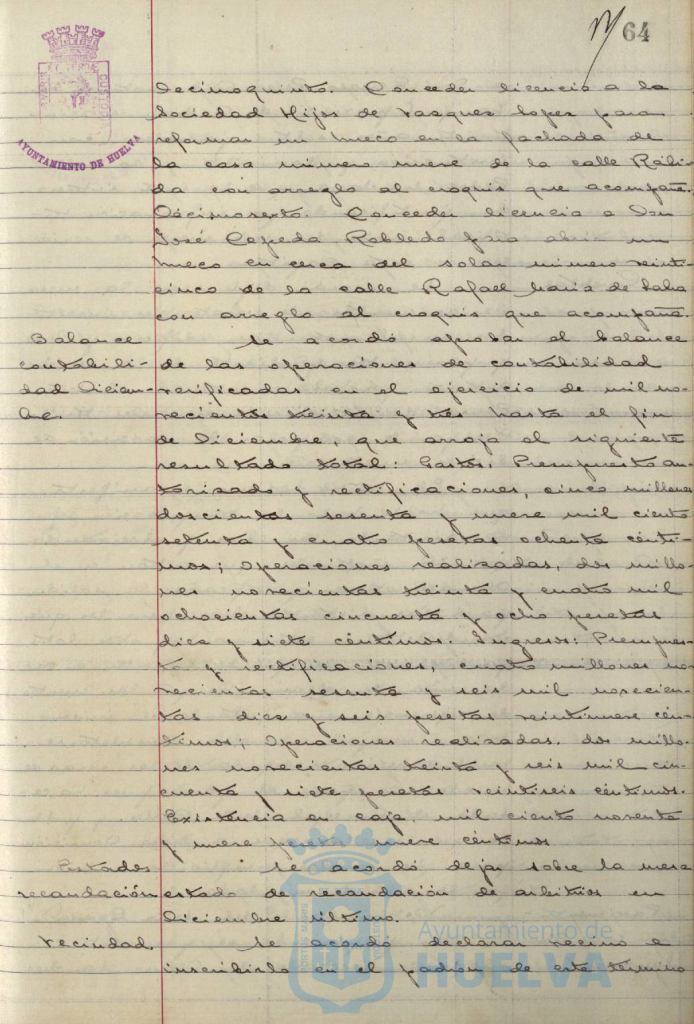 64
AYUNTAMIENTO DE HUELVA
Decimoquinto. Conceder licencia a la
Sociedad Hijos de Vasques Lopes para
reformar un hueco en la fachada de
la casa número nueve de la calle Rábi-
da con arreglo al croquis que acompaña.
Décimosexto. Conceder licencia a Don
José Cepeda Robledo para abrir un
hueco en cerca del solar número veinti-
cinco de la calle Rafael María de Labra
con arreglo al croquis que acompaña.
Balance
contabili-
dad Diciem-
bre.
Se acordó aprobar el balance
de las operaciones de contabilidad
verificadas en el ejercicio de mil no-
vecientos treinta y tres hasta el fin
de Diciembre, que arroja el siguiente
resultado total: Gastos. Presupuesto au-
torizado y rectificaciones, cinco millones
doscientas sesenta y nueve mil ciento
setenta y cuatro pesetas ochenta cénti-
mos; Operaciones realizadas, dos millo-
nes novecientas treinta y cuatro mil
ochocientas cincuenta y ocho pesetas
diez y siete céntimos. Ingresos: Presupues-
to y rectificaciones, cuatro millones no-
vecientas sesenta y seis mil novecien-
tas diez y seis pesetas veintinueve cén-
timos; Operaciones realizadas. dos millo-
nes novecientas treinta y seis mil cin-
cuenta y siete pesetas veintiseis céntimos.
Existencia en caja, mil ciento noventa
y nueve pesetas nueve céntimos
Estados
recaudación
Se acordó dejar sobre la mesa
estado de recaudación de arbitrios en
Diciembre último.
Vecindad.
Se acordó declarar vecino e
inscribirlo en el padrón de este término
Ayuntamiento de
HUELVA